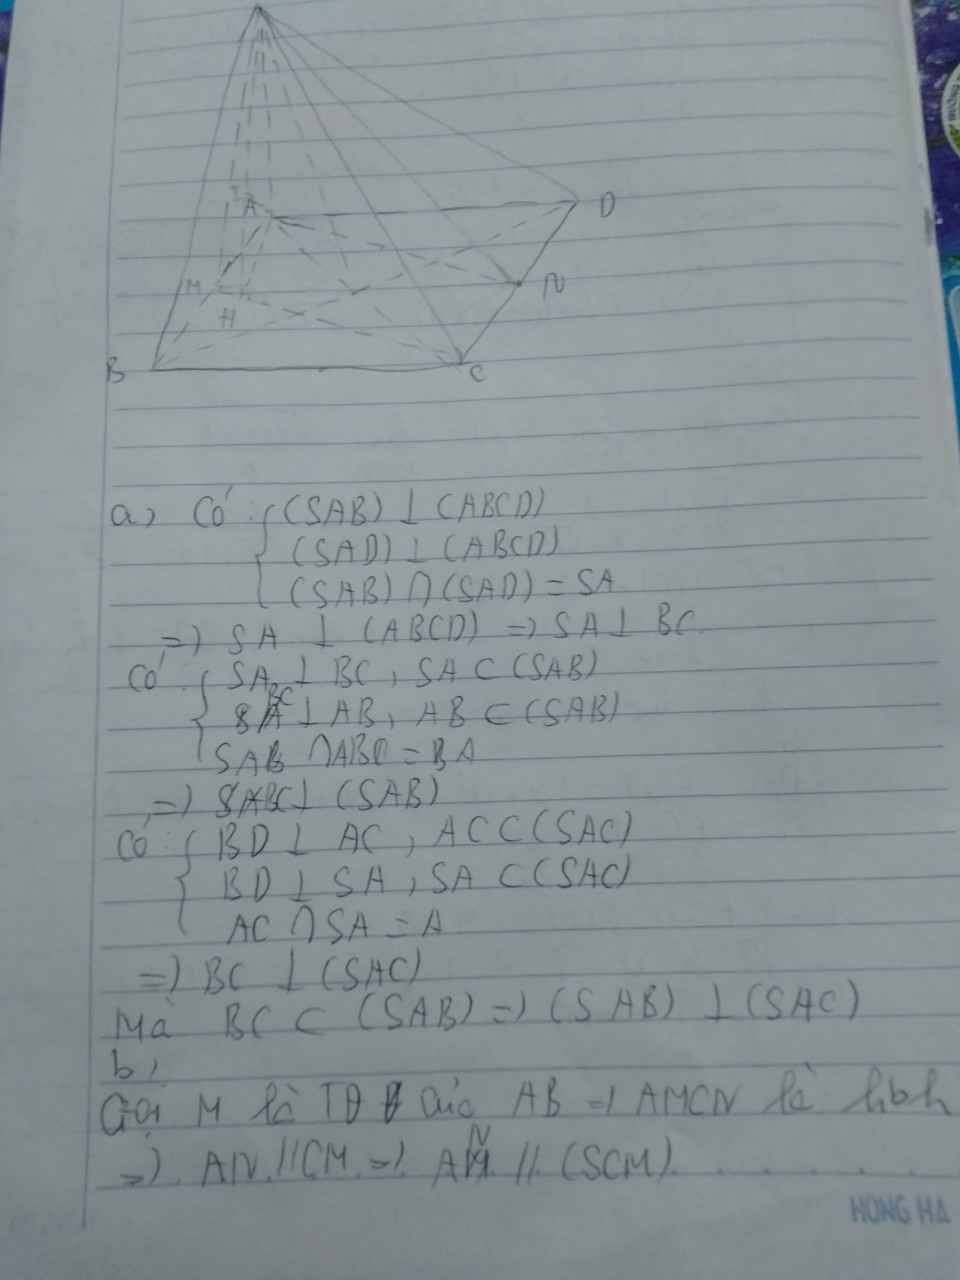 A
D
M
N
H
B
C
a) Có: { (SAB) ⊥ (ABCD)
(SAD) ⊥ (ABCD)
(SAB) ∩ (SAD) = SA
=) SA ⊥ (ABCD) => SA ⊥ BC
Có: { SA ⊥ BC, SA ⊂ (SAB)
BC ⊥ AB, AB ⊂ (SAB)
=) BC ⊥ (SAB)
Có { BD ⊥ AC, AC ⊂ (SAC)
BD ⊥ SA, SA ⊂ (SAC)
AC ∩ SA = A
=) BC ⊥ (SAC)
Mà BC ⊂ (SAB) =) (SAB) ⊥ (SAC)
b,
Gọi M là TĐ của AB =) AMCN là hbh
=) AN // CM =) AN // (SCM)
HONG HA